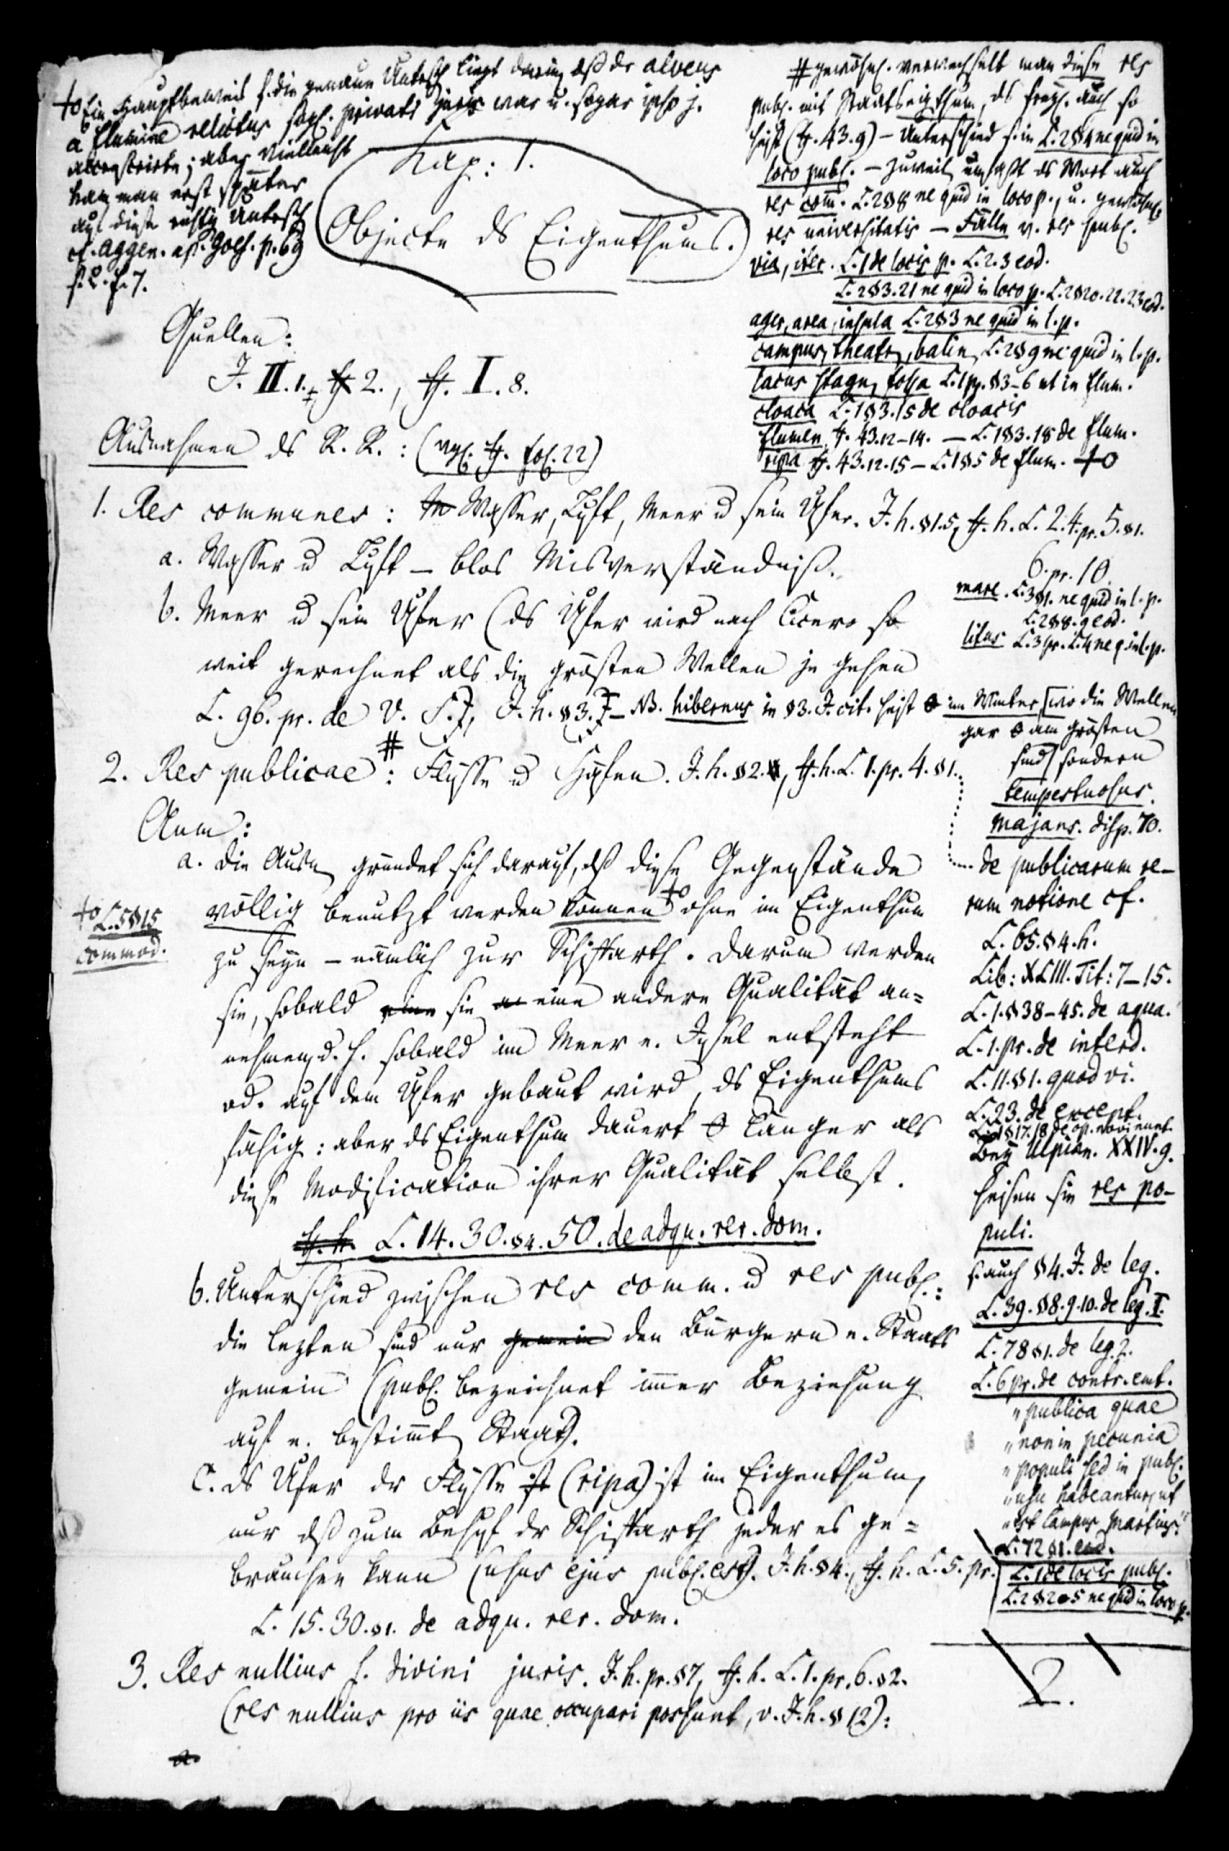 Ein Hauptbeweis f. die genaue Untersch liegt darin, dß dr alveus
a flumine relictus sogl. privati juris war u. sogar ipso j.
accrescirte; aber vielleicht
kam man erst später
auf diese richtig Untersch
cf. Aggen. ap. Goes. p. 69
Kap: 1.
Objecte ds Eigenthums.
Quellen:
J. II. 1. 2., I. 8.
Ausnahmen ds R. R.: (vgl. fol. 22)
1. Res communes: Wasser, Luft, Meer u sein Ufer. J. h. §1.5, h. L. 2. 4. pr. 5. §1.
6. pr. 10.
a. Wasser u Luft – blos Misverständniß.
b. Meer u sein Ufer (ds Ufer wird nach Cicero so
weit gerechnet als die grösten Wellen je gehen
L. 96. pr. de V. S., J. h. §3. – NB. hibernus in §3. J. cit. heist im Winter, wo die Wellen
gar am grösten
sind sondern
tempestuosus.
Majans. disp. 70.
2. Res publicae #: Flüsse u Häfen. J. h. §2., h. L. 1. pr. 4. §1.
Anm:
a. die Ausn gründet sich darauf, dß diese Gegenstände
völlig benutzt werden können ohne im Eigenthum
zu seyn – nämlich zur Schiffarth. Darum werden
sie, sobald sie eine andere Qualität an=
nehmen, d. h. sobald im Meer e. Insel entsteht
od. auf dem Ufer gebaut wird, ds Eigenthums
fähig: aber ds Eigenthum dauert länger als
diese Modification ihrer Qualität selbst.
L. 14. 30. §4. 50. de adqu. rer. dom.
b. Unterschied zwischen res comm. u res publ.:
die lezten sind nur gemein den Bürgern e. Staats
gemein (publ. bezeichnet immer Beziehung
auf e. bestimt Staat).
c. ds Ufer dr Flüsse ist (ripa) ist im Eigenthum,
nur dß zum Behuf dr Schiffarth jeder es ge=
brauchen kann (usus ejus publ. est). J. h. §4., h. L. 5. pr.
L. 15. 30. §1. de adqu. rer. dom.
3. Res nullius s. divini juris. J. h. pr. §7, h. L. 1. pr. 6. §2.
(res nullius pro iis quae occupari possunt, v. J. h. §12):
L. 5 §15
commod.
# gewöhnl. verwechselt man diese res
publ. mit Staatseigthum, ds freyl. auch so
heist (43. 9) – Unterschied s. in L. 2 §4 ne quid in
loco publ. – Zuweil umfaßt ds Wort auch
res comm. L. 2 §8 ne quid in loco p., u.
res universitatis – Fälle v. res publ.
via, iter. L. 1 de locis p. L. 2. 3 eod.
L. 2 §3. 21 ne quid in loco p. L. 2 §20. 22. 23 eod.
ager, area, insula L. 2 §3 ne quid in l. p.
campus, theatr, balin, L. 2 §9 ne quid in l. p.
lacus stagn, fossa L. 1 pr. §3–6 ut in flum.
cloaca L. 1 §3. 15 de cloacis
flumen 43. 12–14. – L. 1 §3. 18 de flum.
ripa 43. 12. 15 – L. 1 §5 de flum.
mare. L. 3 §1. ne quid in l. p.
L. 2 §8. 9 eod.
litus L. 3 pr. L. 4 ne q. in l. p.
de publicarum re–
rum notione cf.
L. 65. §4. h.
Lib: XLIII. Tit: 7–15.
L. 1. §38–45. de aqua.
L. 1. pr. de interd.
L. 11. §1. quod vi.
L. 23. de except.
§17. 18 de op. novi nunt.
Bey Ulpian. XXIV. 9.
heisen sie res po–
puli.
s. auch §4. J. de leg.
L. 39. §8. 9. 10. de leg. I.
L. 78 §1. de leg. 2.
L. 6 pr. de contr. emt.
"publica quae
"non in pecunia
"populi sed in publ.
"usu habeantur, ut
"est Campus Martius."
L. 72 §1. eod.
L. 1 de locis publ.
L. 2 §2–5 ne quid in loco p.
2.